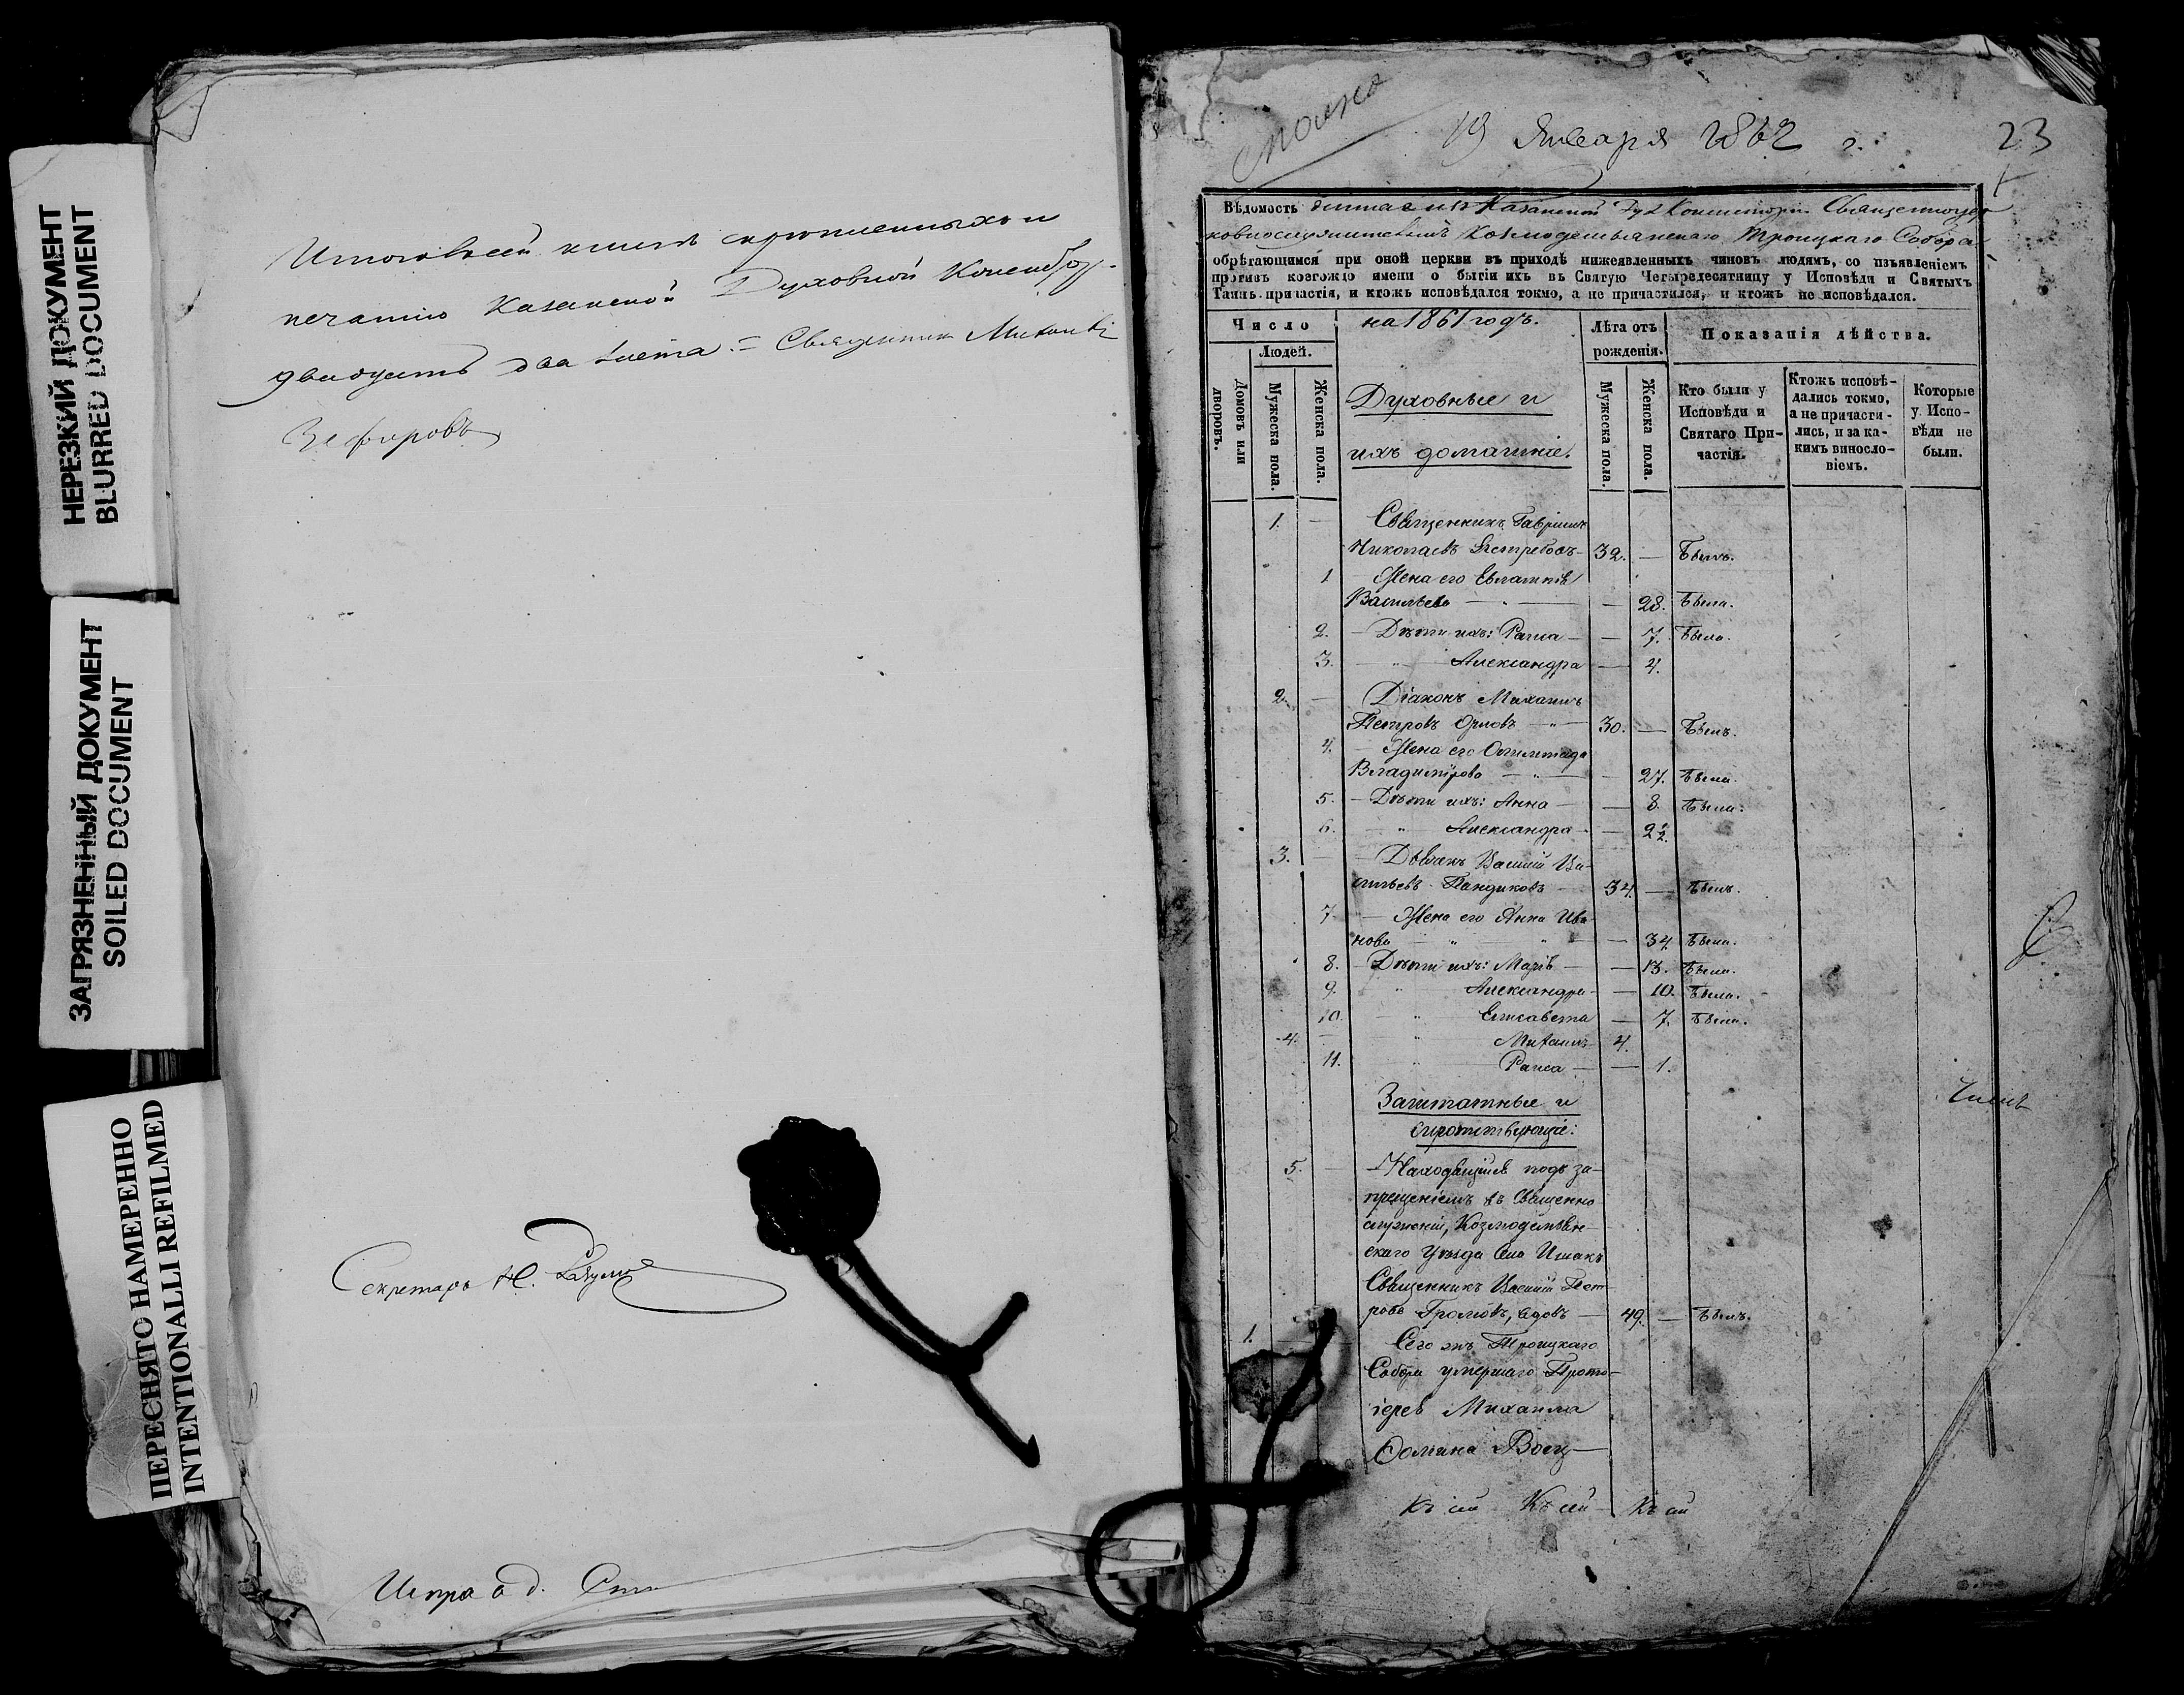 НЕРЕЗКИЙ ДОКУМЕНТ
BLURRED DOCUMENT
ЗАГРЯЗНЕННЫЙ ДОКУМЕНТ
SOILED DOCUMENT
ПЕРЕСНЯТО НАМЕРЕННО
INTENTIONALLI REFILMED
Итого всей книгѣ скрѣпленныхъ и
печатию Казанской Духовной
двадцать два листа = Священник Михаилъ
Зефировъ
Секретарь
19 Января 1862 г.
23
Вѣдомость Казанской Дух Консисторіи
Козмодемьянскаго Троицкаго Собора
обрѣтающимся при оной церкви въ приходѣ нижеявленныхъ чиновъ людямъ, со изъявленіемъ
противъ коегождо имени о бытіи ихъ въ Святую Четыредесятницу у Исповѣди и Святыхъ
Таинъ причастія, и ктожъ исповѣдался токмо, а не причастился, и ктожъ не исповѣдался.
Число
на 1861 годъ.
Лѣта отъ рожденія.
Показанія дѣйства.
Людей.
Домовъ или дворовъ.
Мужеска пола.
Женска пола.
Духовные и
ихъ домашніе.
Мужеска пола.
Женска пола.
Кто были у Исповѣди и Святаго При-частія.
Ктожъ исповѣ-дались токмо, а не причасти-лись, и за ка-кимъ винословіемъ.
Которые у Испо-вѣди не были.
1. — Священникъ Гавріилъ
Николаевъ Ястребовъ — 32. — Былъ.
1 — Жена его Евлампія
Васильева — 28. Была.
2. — Дѣти ихъ: Раиса — 7. Была.
3. — " Александра — 4.
2. — Діаконъ Михаилъ
Петровъ Орловъ — 30. — Былъ.
4. — Жена его Олимпіада
Владимірова — 27. Была.
5. — Дѣти ихъ: Анна — 8. Была.
6. — " Александра — 2½.
3. — Дьячекъ Василій Ва-
сильевъ Пандиковъ — 34. — Былъ.
7 — Жена его Анна Ива-
нова — 34 Была.
8. — Дѣти ихъ: Марія — 13. Была.
9. " Александра — 10. Была.
10. — " Елисавета — 7. Была.
4. — " Михаилъ 4.
11. " Раиса — 1.
Заштатные и
сиротствующіе:
5. — Находящійся подъ за-
прещеніемъ въ Священно
служеніи, Козмодемьян-
скаго уѣзда Села Ишакъ
Священникъ Василій Пет-
ровъ Громовъ, вдовъ — 49. — Былъ.
1. Сего жъ Троицкаго
Собора умершаго Прото-
іерея Михаила
Фомина
Къ сей Къ сей Къ сей